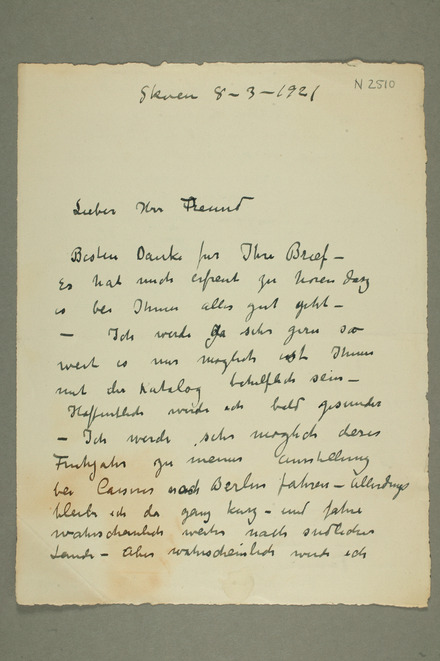 N 2510
Skøien 8-3-1921
Lieber Herr Freund
Besten Danke fur Ihre Brief –
Es hat mich erfreut zu horen dasz
es bei Ihnen alles gut geht –
– Ich werde ja sehr gern so
weit es mir moglich ist Ihnen
mit die Katalog behilflich sein –
Hoffentlich werde ich bald gesunder
– Ich werde sehr moglich dieses
Fruhjahr zu meiner Ausstellung
bei Cassirer nach Berlin fahren – Allerdings
bleibe ich da ganz kurz – und fahre
wahrscheinlich weiter nach sudlicher
Lande – Aber wahrscheinlich werde ich